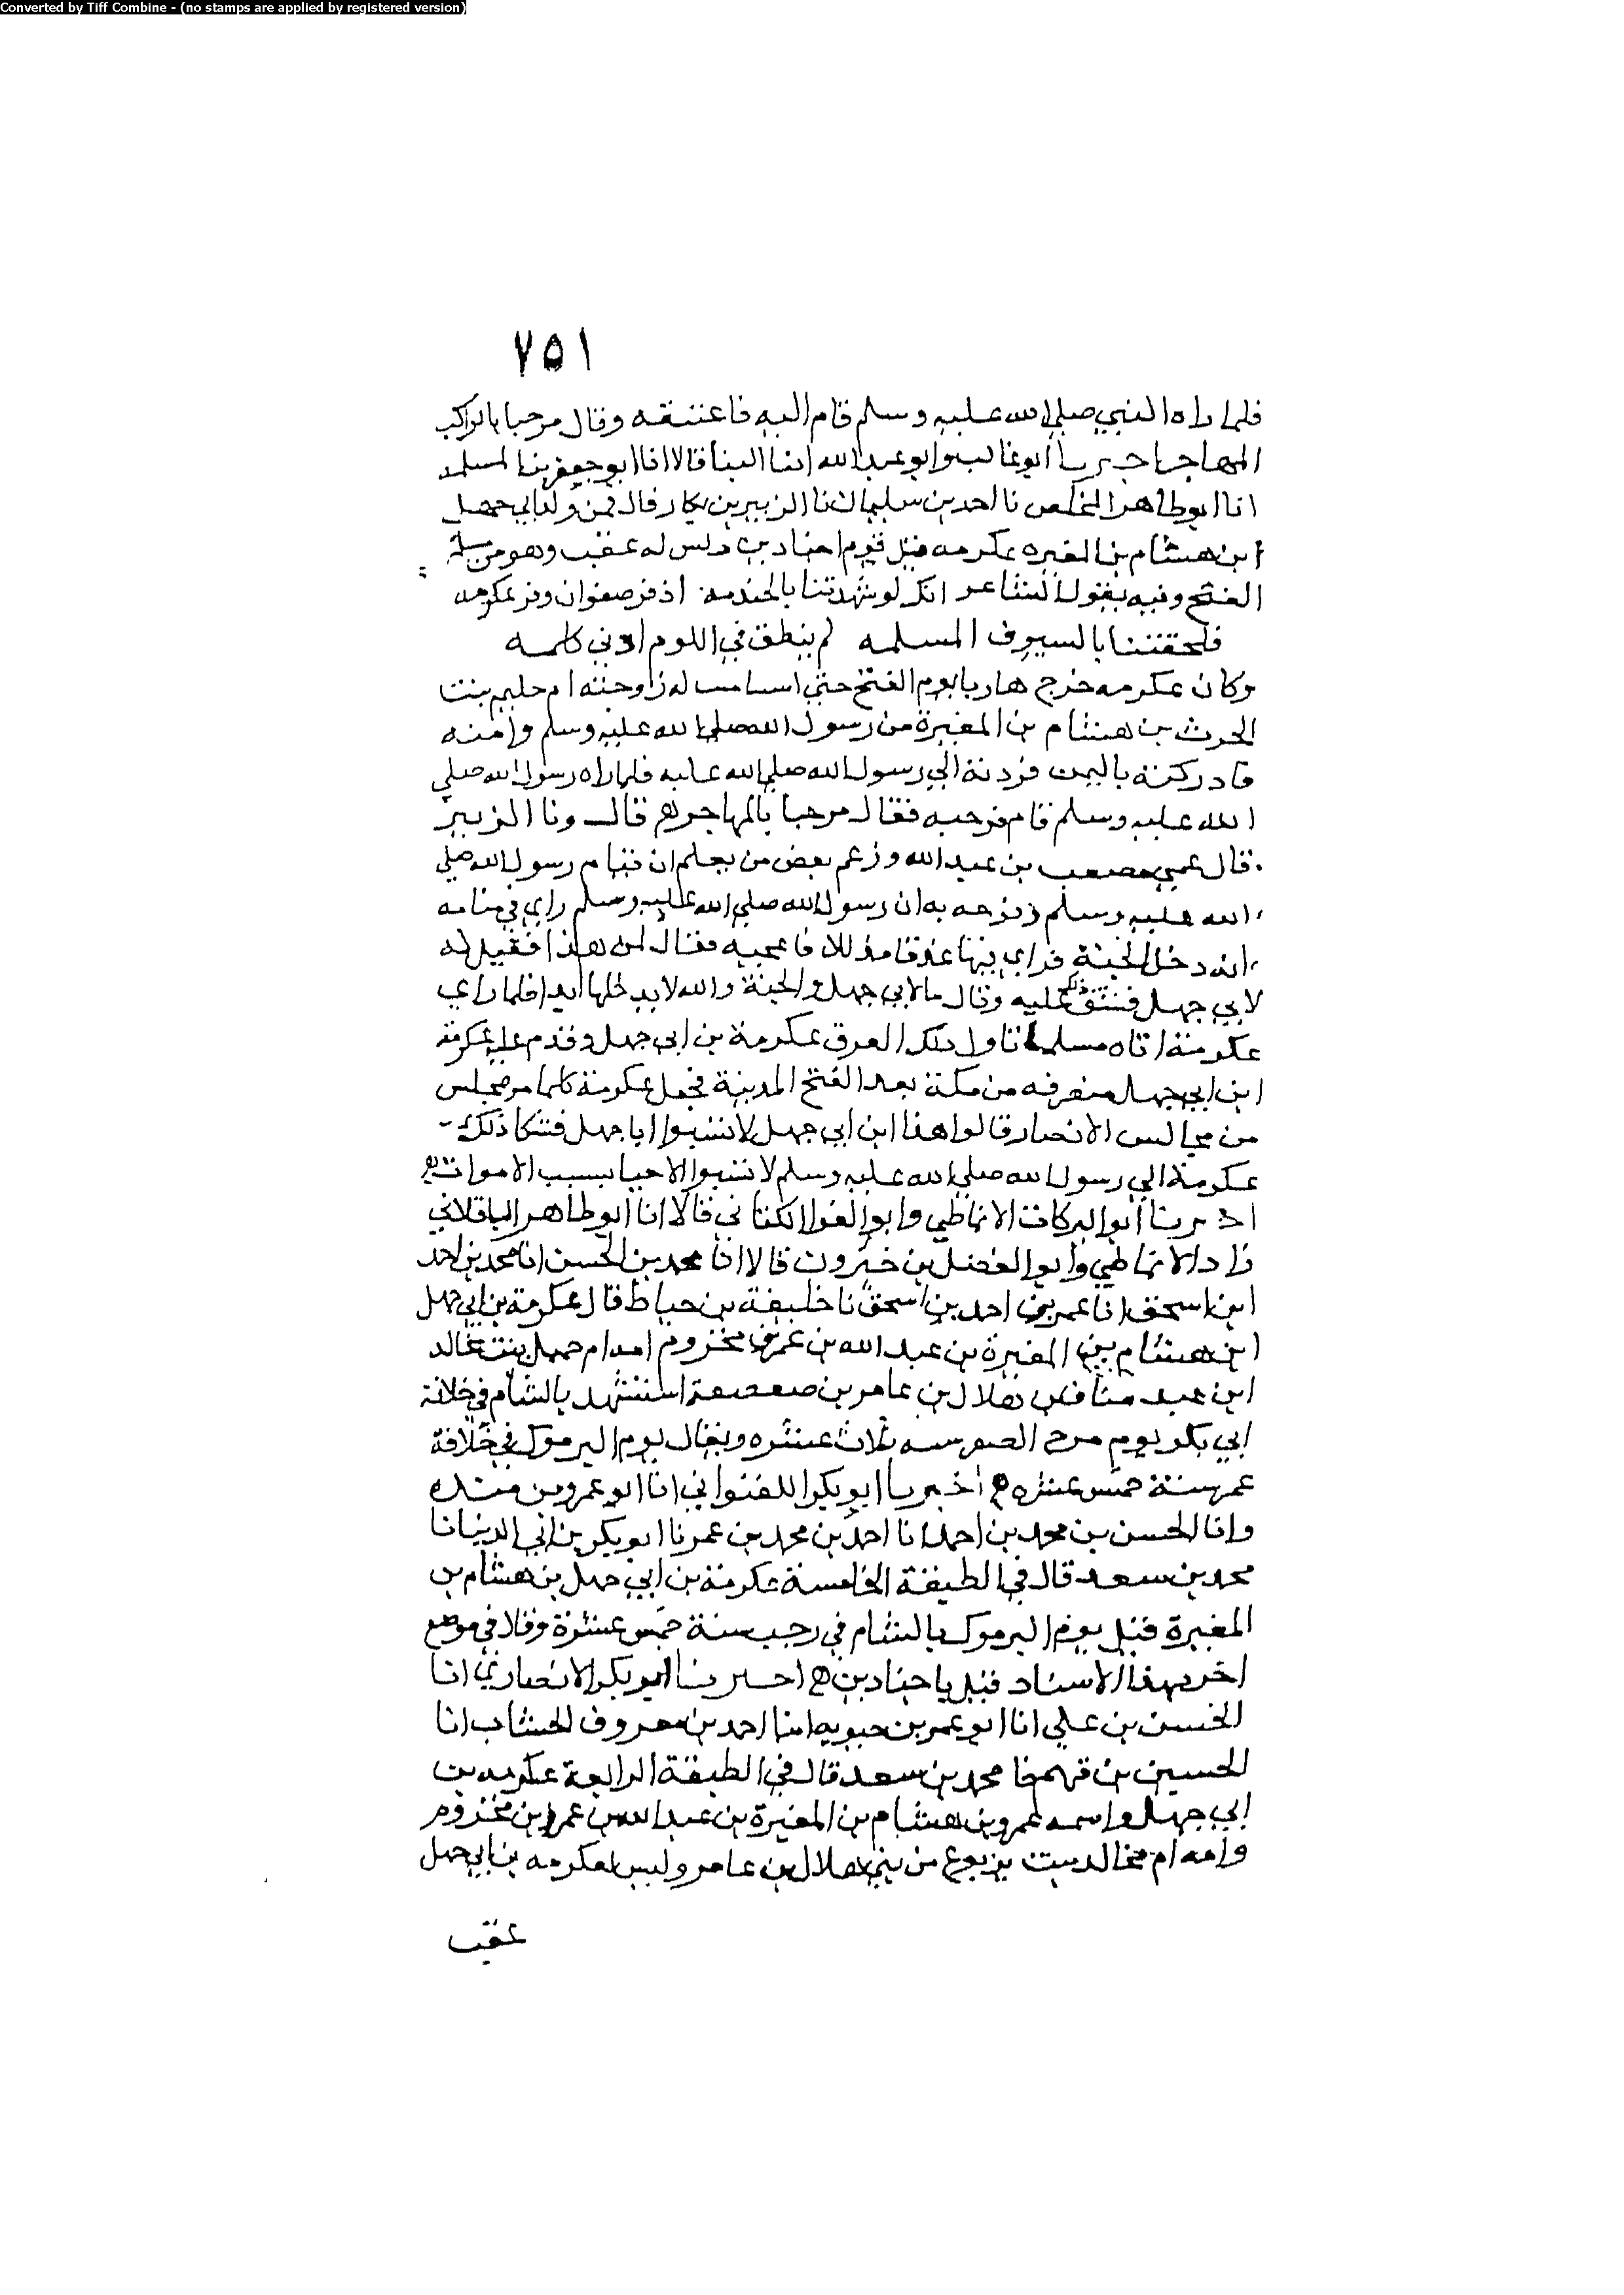 Converted by Tiff Combine - (no stamps are applied by registered version)
٧٥١
فلما راه النبي صلى الله عليه وسلم قام اليه فاعتنقه وقال مرحبا بالراكب
المهاجر اخبرنا أبو غالب وابو عبد الله ابنا البنا قالا انا ابو جعفر بن المسلمه
انا ابو طاهر المخلص نا احمد بن سليمان نا الزبير بن بكار قال فمن ولد ابي جهل
ابن هشام بن المغيره عكرمه قتل يوم اجنادين وليس له عقب وهو من مسلمة
الفتح وفيه يقول الشاعر انك لو شهدتنا بالخندمه اذ فر صفوان وفر عكرمه
فلحقتنا بالسيوف المسلمه لم ينطق في اللوم ادني كلمه
وكان عكرمه خرج هاربا يوم الفتح حتي استامنت له زوجته ام حليم بنت
الحرث بن هشام بن المغيرة من رسول الله صلى الله عليه وسلم وامنه
فادركته باليمن فردته الي رسول الله صلى الله عليه فلما راه رسول الله صلي
الله عليه وسلم قام فرحبه فقال مرحبا بالمهاجر ه قال ونا الزبير
قال عمي مصعب بن عبد الله وزعم بعض من يعلم ان قيام رسول الله صلي
الله عليه وسلم وفرحه به ان رسول الله صلي الله عليه وسلم راي في منامه
انه دخل الجنة فراي فيها عذقا مذللا فاعجبه فقال لمن هذا فقيل له
لابي جهل فشق ذلك عليه وقال ما لابي جهل والجنة والله لا يدخلها ابدا فلما راي
عكرمة اتاه مسلما تاول ذلك العرق عكرمة بن ابي جهل وقدم عليه عكرمة
ابن ابي جهل منصرفه من مكة بعد الفتح المدينة فجعل عكرمة كلما مر بمجلس
من مجالس الانصار قالوا هذا ابن ابي جهل لا تسبوا ابا جهل فشكا ذلك
عكرمة الي رسول الله صلي الله عليه وسلم لا تسبوا الاحيا بسبب الاموات ه
اخبرنا أبو البركات الانماطي وابو العز الكتاني قالا انا ابو طاهر الباقلاني
زاد الانماطي وابو الفضل بن خيرون قالا انا محمد بن الحسن انا محمد بن احمد
ابن اسحق انا عمر بن احمد بن اسحق نا خليفة بن خياط قال عكرمة بن ابي جهل
ابن هشام بن المغيرة بن عبد الله بن عمر بن مخزوم امه ام جميل بنت مخالد
ابن عبد مناف بن هلال بن عامر بن صعصعة استشهد بالشام في خلافة
ابي بكر يوم مرج الصفر سنه ثلاث عشره ويقال يوم اليرموك في خلافة
عمر سنة خمس عشره ه اخبرنا ابو بكر اللفتواني انا ابو عمرو بن منده
وانا الحسن بن محمد بن احمد انا احمد بن محمد بن عمر نا ابو بكر بن ابي الدنيا نا
محمد بن سعد قال في الطبقة الخامسة عكرمة بن ابي جهل بن هشام بن
المغيرة قتل يوم اليرموك بالشام في رجب سنة خمس عشرة وقالا في موضع
اخر بهذا الاسناد قتل باجنادين ه اخبرنا ابو بكر الانصاري انا
الحسن بن علي انا ابو عمر بن حيويه انا احمد بن معروف الخشاب انا
الحسين بن فهم نا محمد بن سعد قال في الطبقة الرابعة عكرمه بن
ابي جهل واسمه عمرو بن هشام بن المغيرة بن عبد الله بن عمر بن مخزوم
وامه ام مخالد بنت يربوع من بني هلال بن عامر وليس لعكرمه بن ابي جهل
عقب